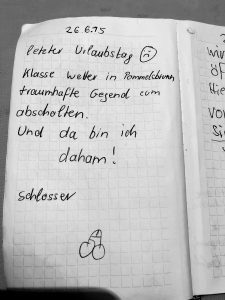 26.6.15
letzter Urlaubstag ☹
Klasse Wetter in Pommelsbrunn,
traumhafte Gegend zum
abschalten.
Und da bin ich
daham!
Schlosser